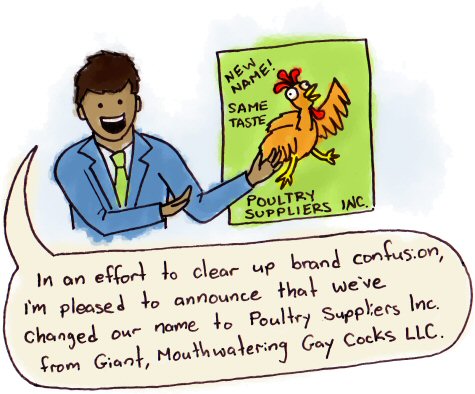 NEW
NAME!
SAME
TASTE
POULTRY
SUPPLIERS INC.
In an effort to clear up brand confusion,
i'm pleased to announce that we've
changed our name to Poultry Suppliers Inc.
from Giant, Mouthwatering Gay Cocks LLC.